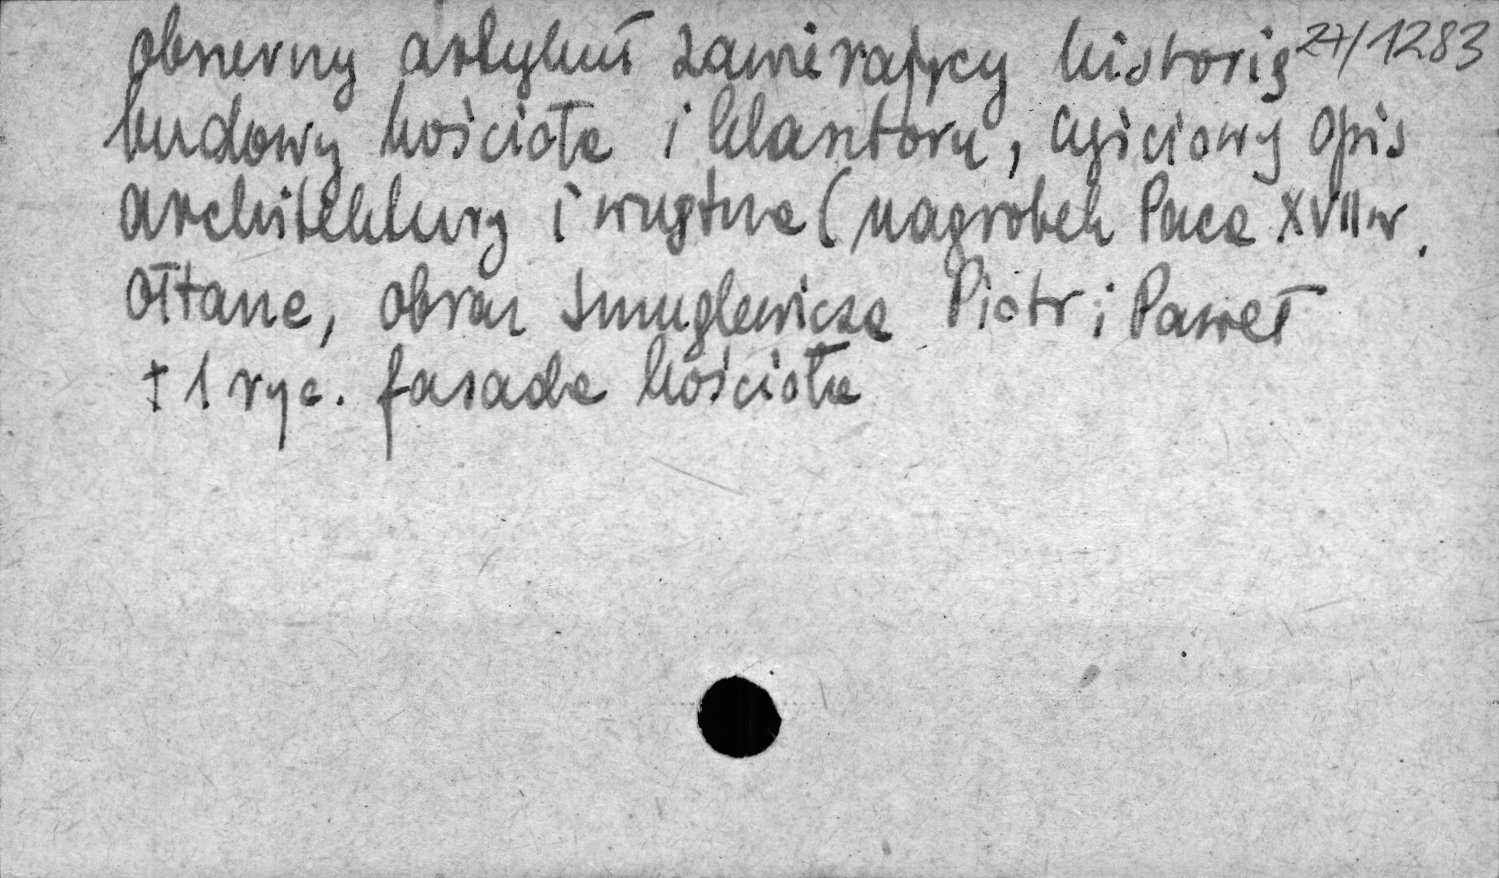 obszerny artykuł zawierający historię 27/1283
budowy kościoła i klasztoru, częściowy opis
architektury i wnętrza (nagrobek Paca XVII w.
ołtarze, obraz Smuglewicza Piotr i Paweł
+ 1 ryc. fasada kościoła